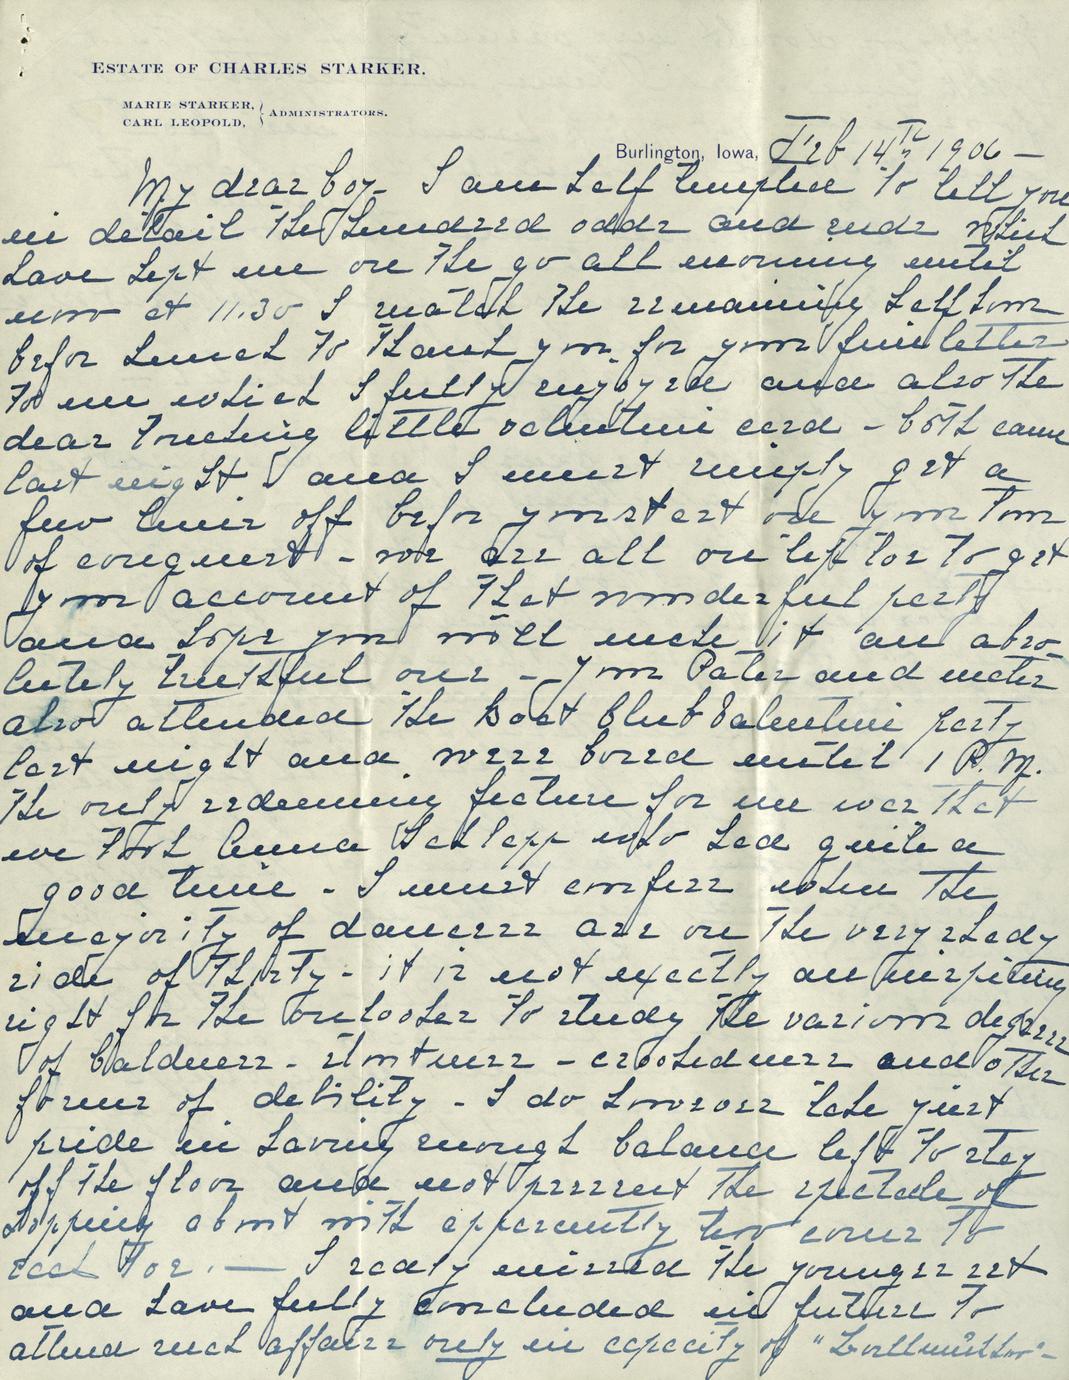 ESTATE OF CHARLES STARKER.
MARIE STARKER,
CARL LEOPOLD, } ADMINISTRATORS.
Burlington, Iowa, Feb 14th 1906 -
My dear boy - I am half tempted to tell you
in detail the hundred odds and ends which
have kept me on the go all morning until
now at 11.30 I snatch the remaining half hour
befor lunch to thank you for your fine letter
to me which I fully enjoyed and also the
dear touching little valentine card - both came
last night and I must simply get a
few lines off befor you start on your tour
of conquest - we are all on tip toe to get
your account of that wonderful party
and hope you will make it an abso-
lutely truthful one - Your Pater and mater
also attended the Boat Club Valentine party
last night and were bored until 1 P.M.
the only redeeming feature for me was that
we took Anna Schlapp who had quite a
good time - I must confess when the
majority of dancers are on the very shady
side of thirty - it is not exactly an inspiring
sight for the onlooker to study the various degrees
of baldness - stoutness - crookedness and other
forms of debility - I do however take just
pride in having enough balance left to stay
off the floor and not present the spectacle of
hopping about with apparently two corns to
each toe. — I sadly missed the younger set
and have fully concluded in future to
attend such affairs only in capacity of "